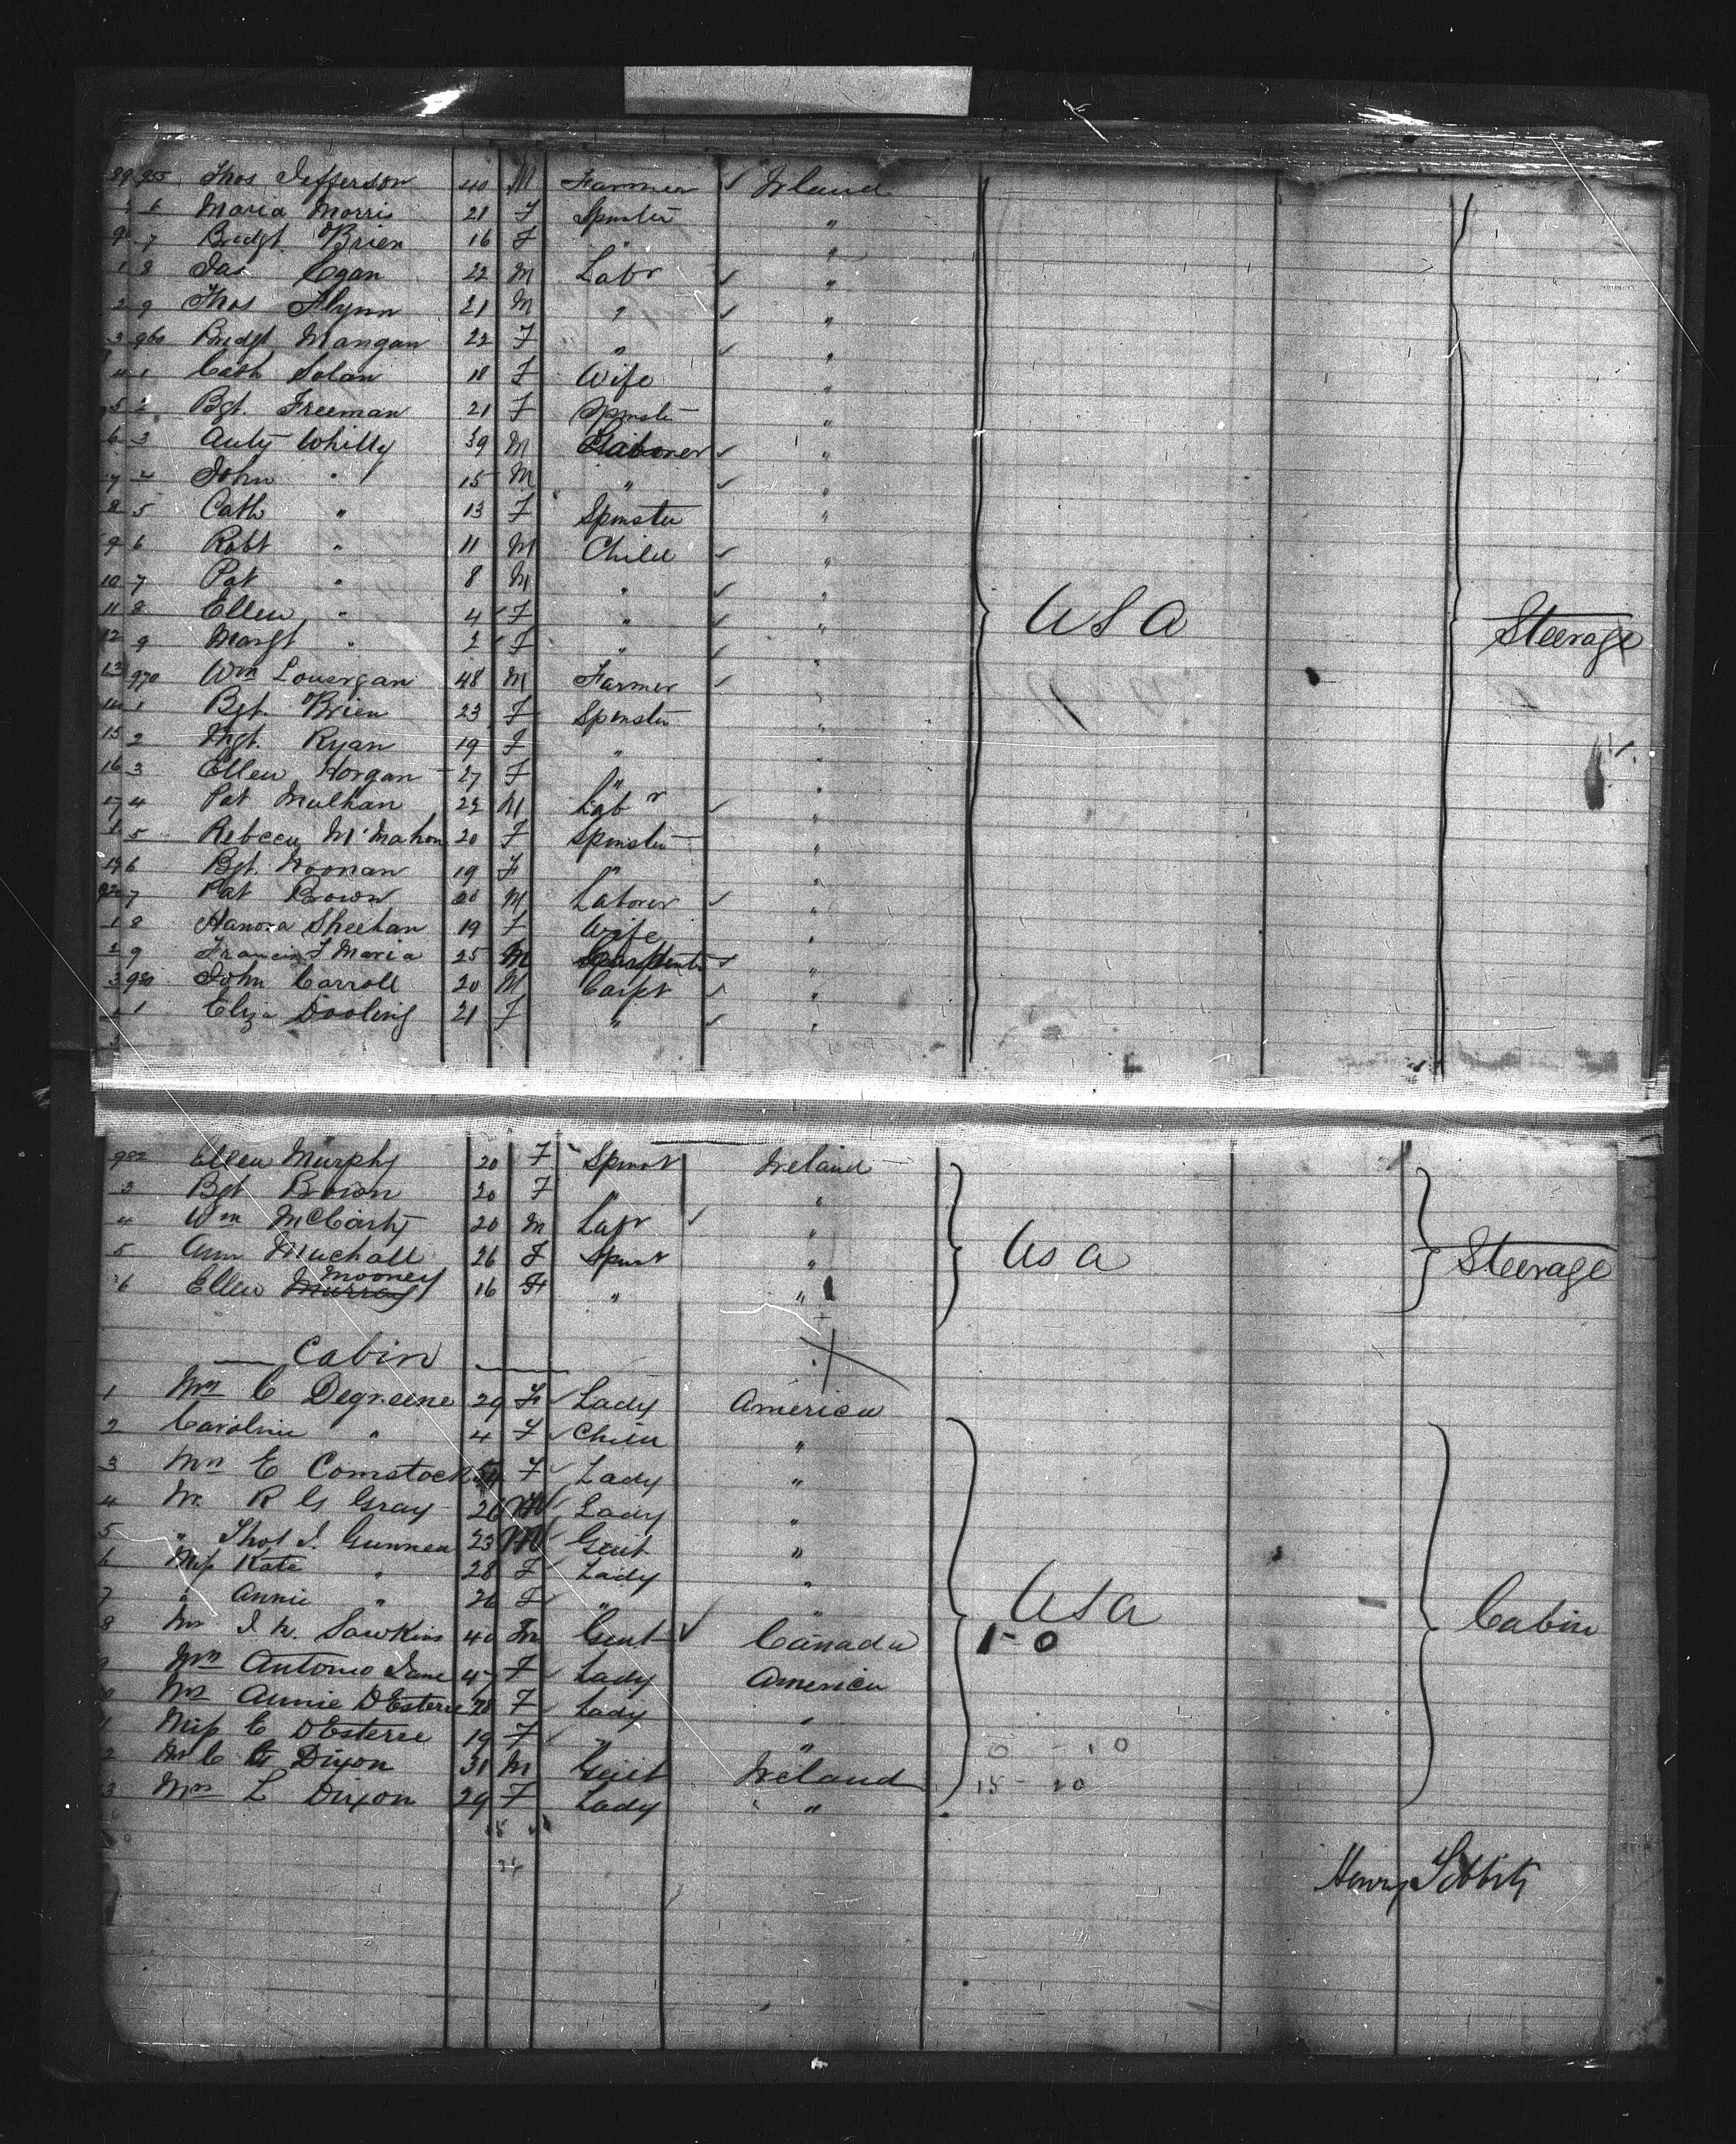 955 Thos Jefferson 40 M Farmer ✓ Ireland
6 Maria Morris 21 F Spinster "
7 Bridgt O'Brien 16 F " "
1 8 Jas Egan 22 M Labr ✓ "
2 9 Thos Flynn 21 M " ✓ "
3 960 Bridgt Mangan 22 F " ✓ "
4 1 Cath Solan 18 F Wife "
5 2 Bgt. Freeman 21 F Spinster "
6 3 Anty Whilly 39 M Laborer ✓ "
7 4 John " 15 M " ✓ "
8 5 Cath " 13 F Spinster "
9 6 Robt " 11 M Child ✓ "
10 7 Pat " 8 M " ✓ "
11 8 Ellen " 4 ✓ F " ✓ " USA Steerage
12 9 Margt " 2 ✓ F " ✓ "
13 970 Wm Lonergan 48 M Farmer ✓ "
14 1 Bgt. O'Brien 23 F Spinster "
15 2 Mgt. Ryan 19 F " "
16 3 Ellen Horgan 27 F " "
17 4 Pat Mulhan 22 M Labr ✓ "
5 Rebecca McMahon 20 F Spinster "
19 6 Bgt. Noonan 19 F " "
7 Pat Brown 20 M Laborer ✓ "
1 8 Hanora Sheehan 19 F Wife "
2 9 Francis F Maria 25 M ✓ "
3 980 John Carroll 20 M Carpt ✓ "
1 Eliza Dooling 21 F " ✓ "
982 Ellen Murphy 20 F Spinst Ireland
3 Bgt Brown 20 F " "
4 Wm McCarty 20 M Labr ✓ "
5 Ann Muchall 26 F Spinst " USA Steerage
Mooney
6 Ellen Murray 16 F " "
Cabin
1 Mrs C Degreene 29 F ✓ Lady America
2 Caroline " 4 F ✓ Child "
3 Mrs E Comstock F ✓ Lady "
4 Mr. R G Gray 26 M Lady "
5 " Thos J. Gunnea 23 M Gent "
6 Miss Kate " 28 F ✓ Lady "
7 " Annie " 26 F ✓ " " USA Cabin
8 Mr J N. Sawkins 40 M Gent ✓ Canada 1-0
9 Mrs Antonio Jane 47 F ✓ Lady America
Mrs Annie D'Esterre 28 F ✓ Lady "
1 Miss C D'Esterre 19 F ✓ " " 0 - 10
2 Mr C G Dixon 31 M Gent Ireland 15 - 10
3 Mrs L Dixon 29 F Lady "
Henry